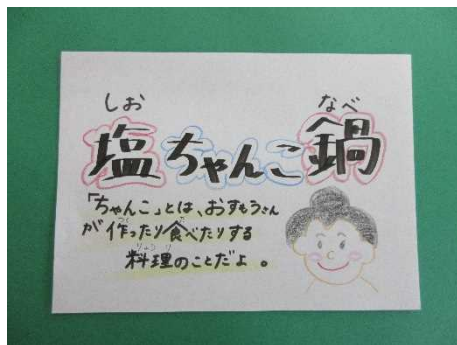 しお なべ
塩ちゃんこ鍋
「ちゃんこ」とは、おすもうさん
が作ったり食べたりする
りょうり
料理のことだよ。